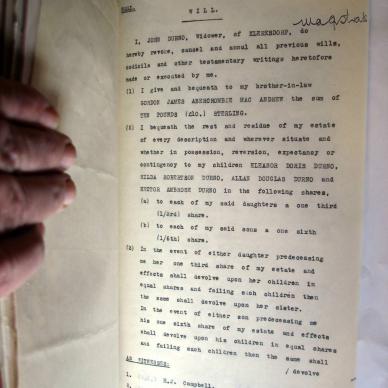 WILL.
I, JOHN DURNO, Widower, of ELMENDORP, do
hereby revoke, cancel and annul all previous wills,
codicils and other testamentary writings heretofore
made or executed by me.
(1) I give and bequeath to my brother-in-law
GORDON JAMES ABERCROMBIE MAC ANDREW the sum of
TEN POUNDS (£10.) STERLING.
I bequeath the rest and residue of my estate
of every description and wherever situate and
whether in possession, reversion, expectancy or
contingency to my children ELEANOR DORIS DURNO,
HILDA ROBERTSON DURNO, ALLAN DOUGLAS DURNO and
HECTOR AMBROSE DURNO in the following shares,
(a) to each of my said daughters a one third
(1/3rd) share.
(b) to each of my said sons a one sixth
(1/6th) share.
(2) In the event of either daughter predeceasing
me her one third share of my estate and
effects shall devolve upon her children in
equal shares and failing such children then
the same shall devolve upon her sister.
In the event of either son predeceasing me
his one sixth share of my estate and effects
shall devolve upon his children in equal shares
and failing such children then the same shall
/ devolve
AS WITNESSES:
1. H.J. Campbell.
2.